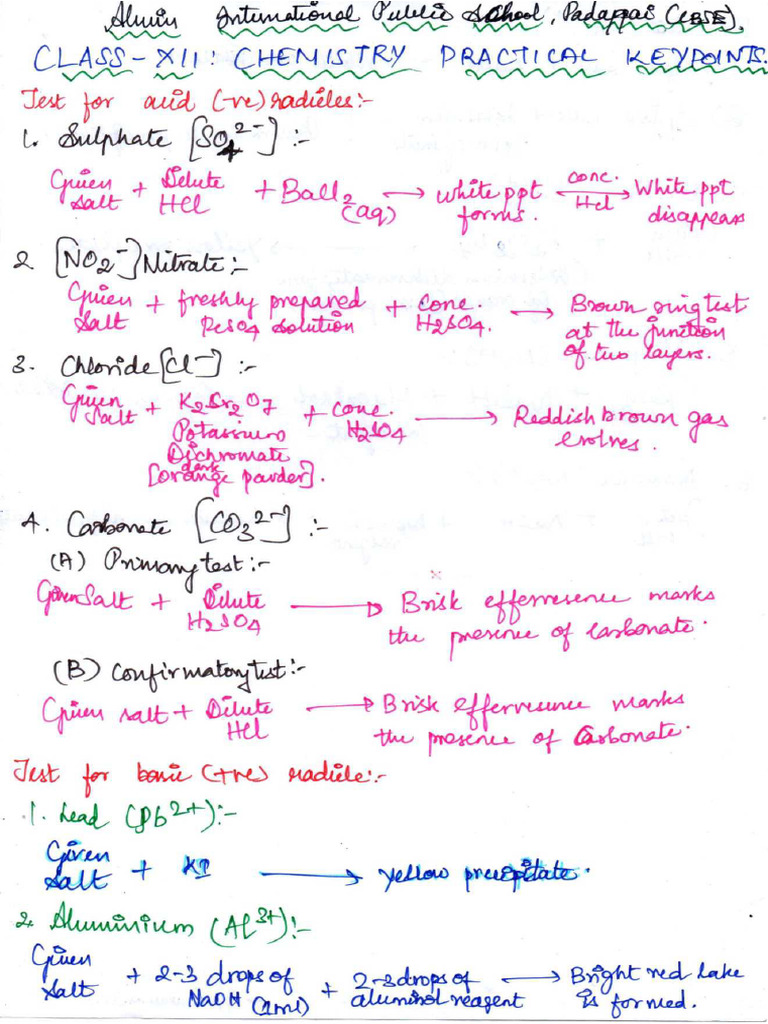 Alwin International Public School, Padappai (CBSE).
CLASS-XII: CHEMISTRY PRACTICAL KEYPOINTS.
Test for acid (-ve) radicles:-
1. Sulphate [SO4 2-] :-
Given Salt + Dilute HCl + BaCl2 (aq) → white ppt forms. conc. HCl → White ppt disappears
2 [NO2-] Nitrate:-
Given Salt + freshly prepared FeSO4 solution + conc. H2SO4. → Brown ring test at the junction of two layers.
3. Chloride [Cl-] :-
Given Salt + K2Cr2O7 Potassium Dichromate [dark orange powder]. + conc. H2SO4 → Reddish brown gas evolves.
4. Carbonate [CO3 2-] :-
(A) Primary test:-
Given Salt + Dilute H2SO4 → Brisk effervesence marks the presence of Carbonate.
(B) Confirmatory test:-
Given salt + Dilute HCl → Brisk effervesence marks the presence of Carbonate.
Test for basic (+ve) radicle:-
1. Lead (Pb2+):-
Given Salt + KI → yellow precipitate.
2. Aluminium (Al3+):-
Given Salt + 2-3 drops of NaOH (1ml) + 2-3 drops of aluminol reagent → Bright red lake is formed.